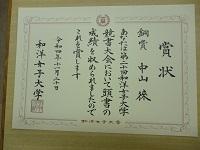 賞状
銅賞 中山 
あなたは第二十回和洋女子大学
競書大会において頭書の
成績を収められましたので
これを賞します
令和四年十一月六日
和洋女子大学